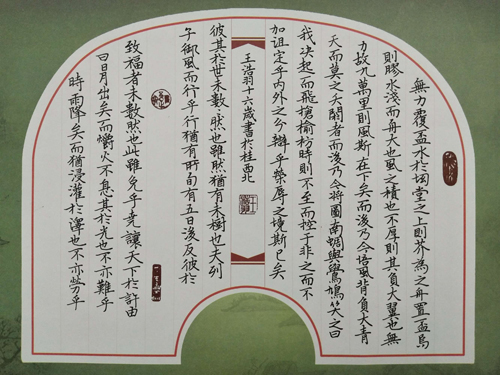 無力覆盃水於坳堂之上則芥為之舟置盃焉
則膠水淺而舟大也風之積也不厚則其負大翼也無
力故九萬里則風斯在下矣而後乃今培風背負大青
天而莫之夭閼者而後乃今將圖南蜩與鷽鳩笑之曰
我決起而飛搶榆枋時則不至而控于非之而不
加沮定乎內外之今辯乎榮辱之境斯已矣
王浩羽十六歲書於桂西北
彼其於世未數〻然也雖然猶有未樹也夫列
子御風而行乎行猶有所旬有五日後反彼於
致福者未數然也此雖免乎堯讓天下於許由
曰日月出矣而爝火不息其於光也不亦難乎
時雨降矣而猶浸灌於澤也不亦勞乎